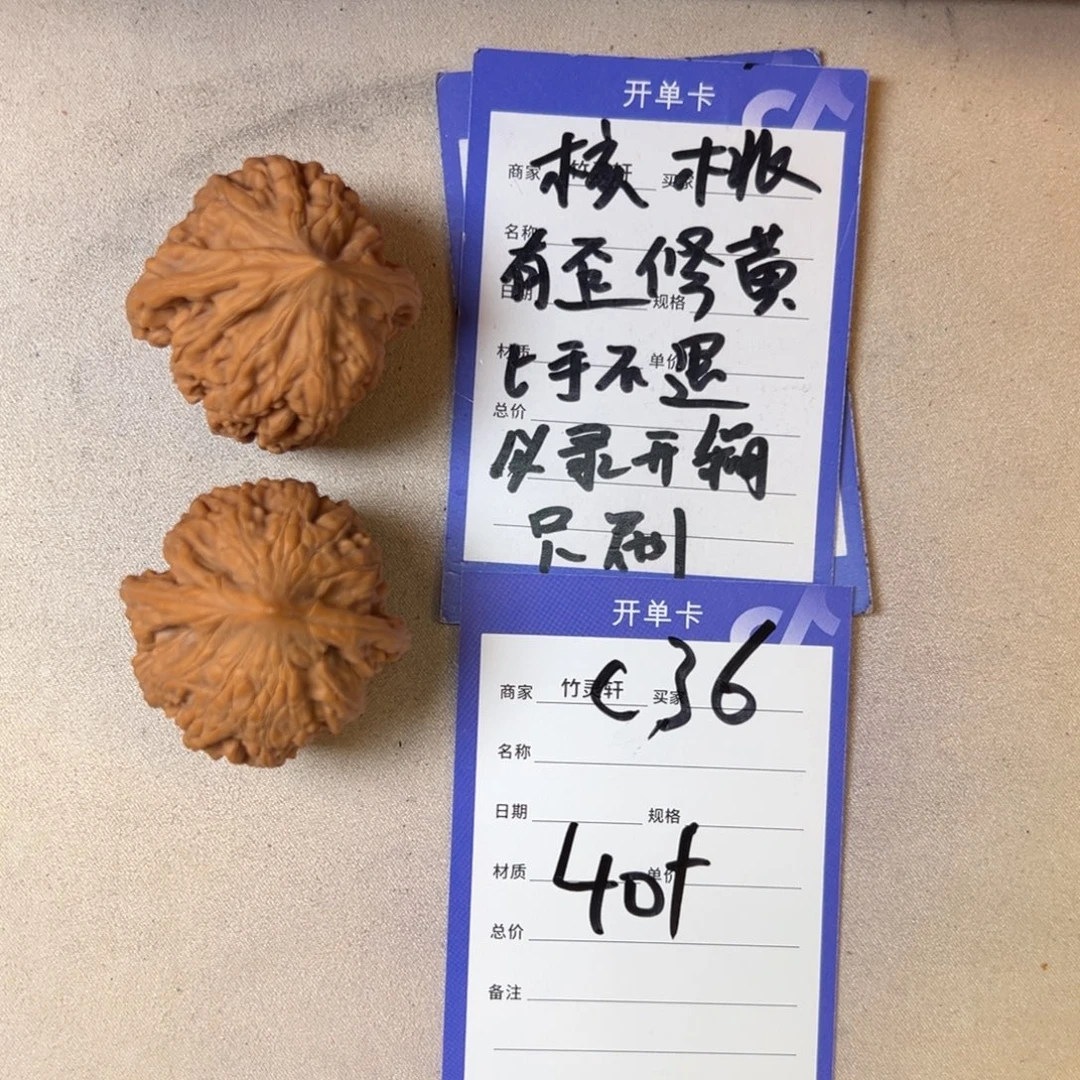 开单卡
核桃
商家 竹灵轩 买家
名称
有歪修黄
日期 规格
上手不退
材质 单价
总价
必录开箱
只刷
开单卡
C36
商家 竹灵轩 买家
名称
日期 规格
40+
材质 单价
总价
备注